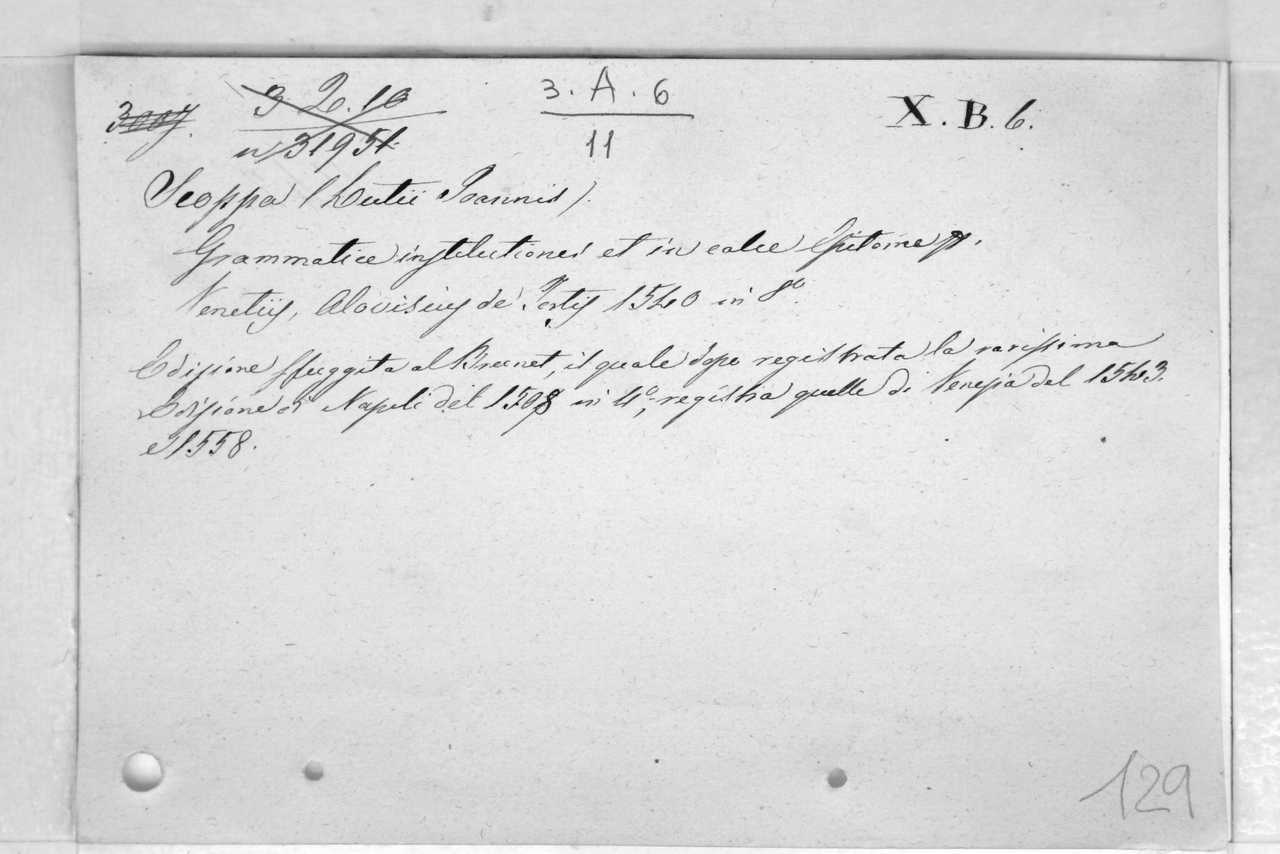 3. A. 6
11
X. B. 6.
n 31951.
Scoppa (Lutii Joannis).
Grammatice institutiones et in calce Epitome
Venetiis, Alovisius de Tortis 1540 in 8º
Edizione sfuggita al Brunet, il quale dopo registrata la rarissima
Edizione di Napoli del 1508 in 4º, registra quelle di Venezia del 1543.
e 1558.
129